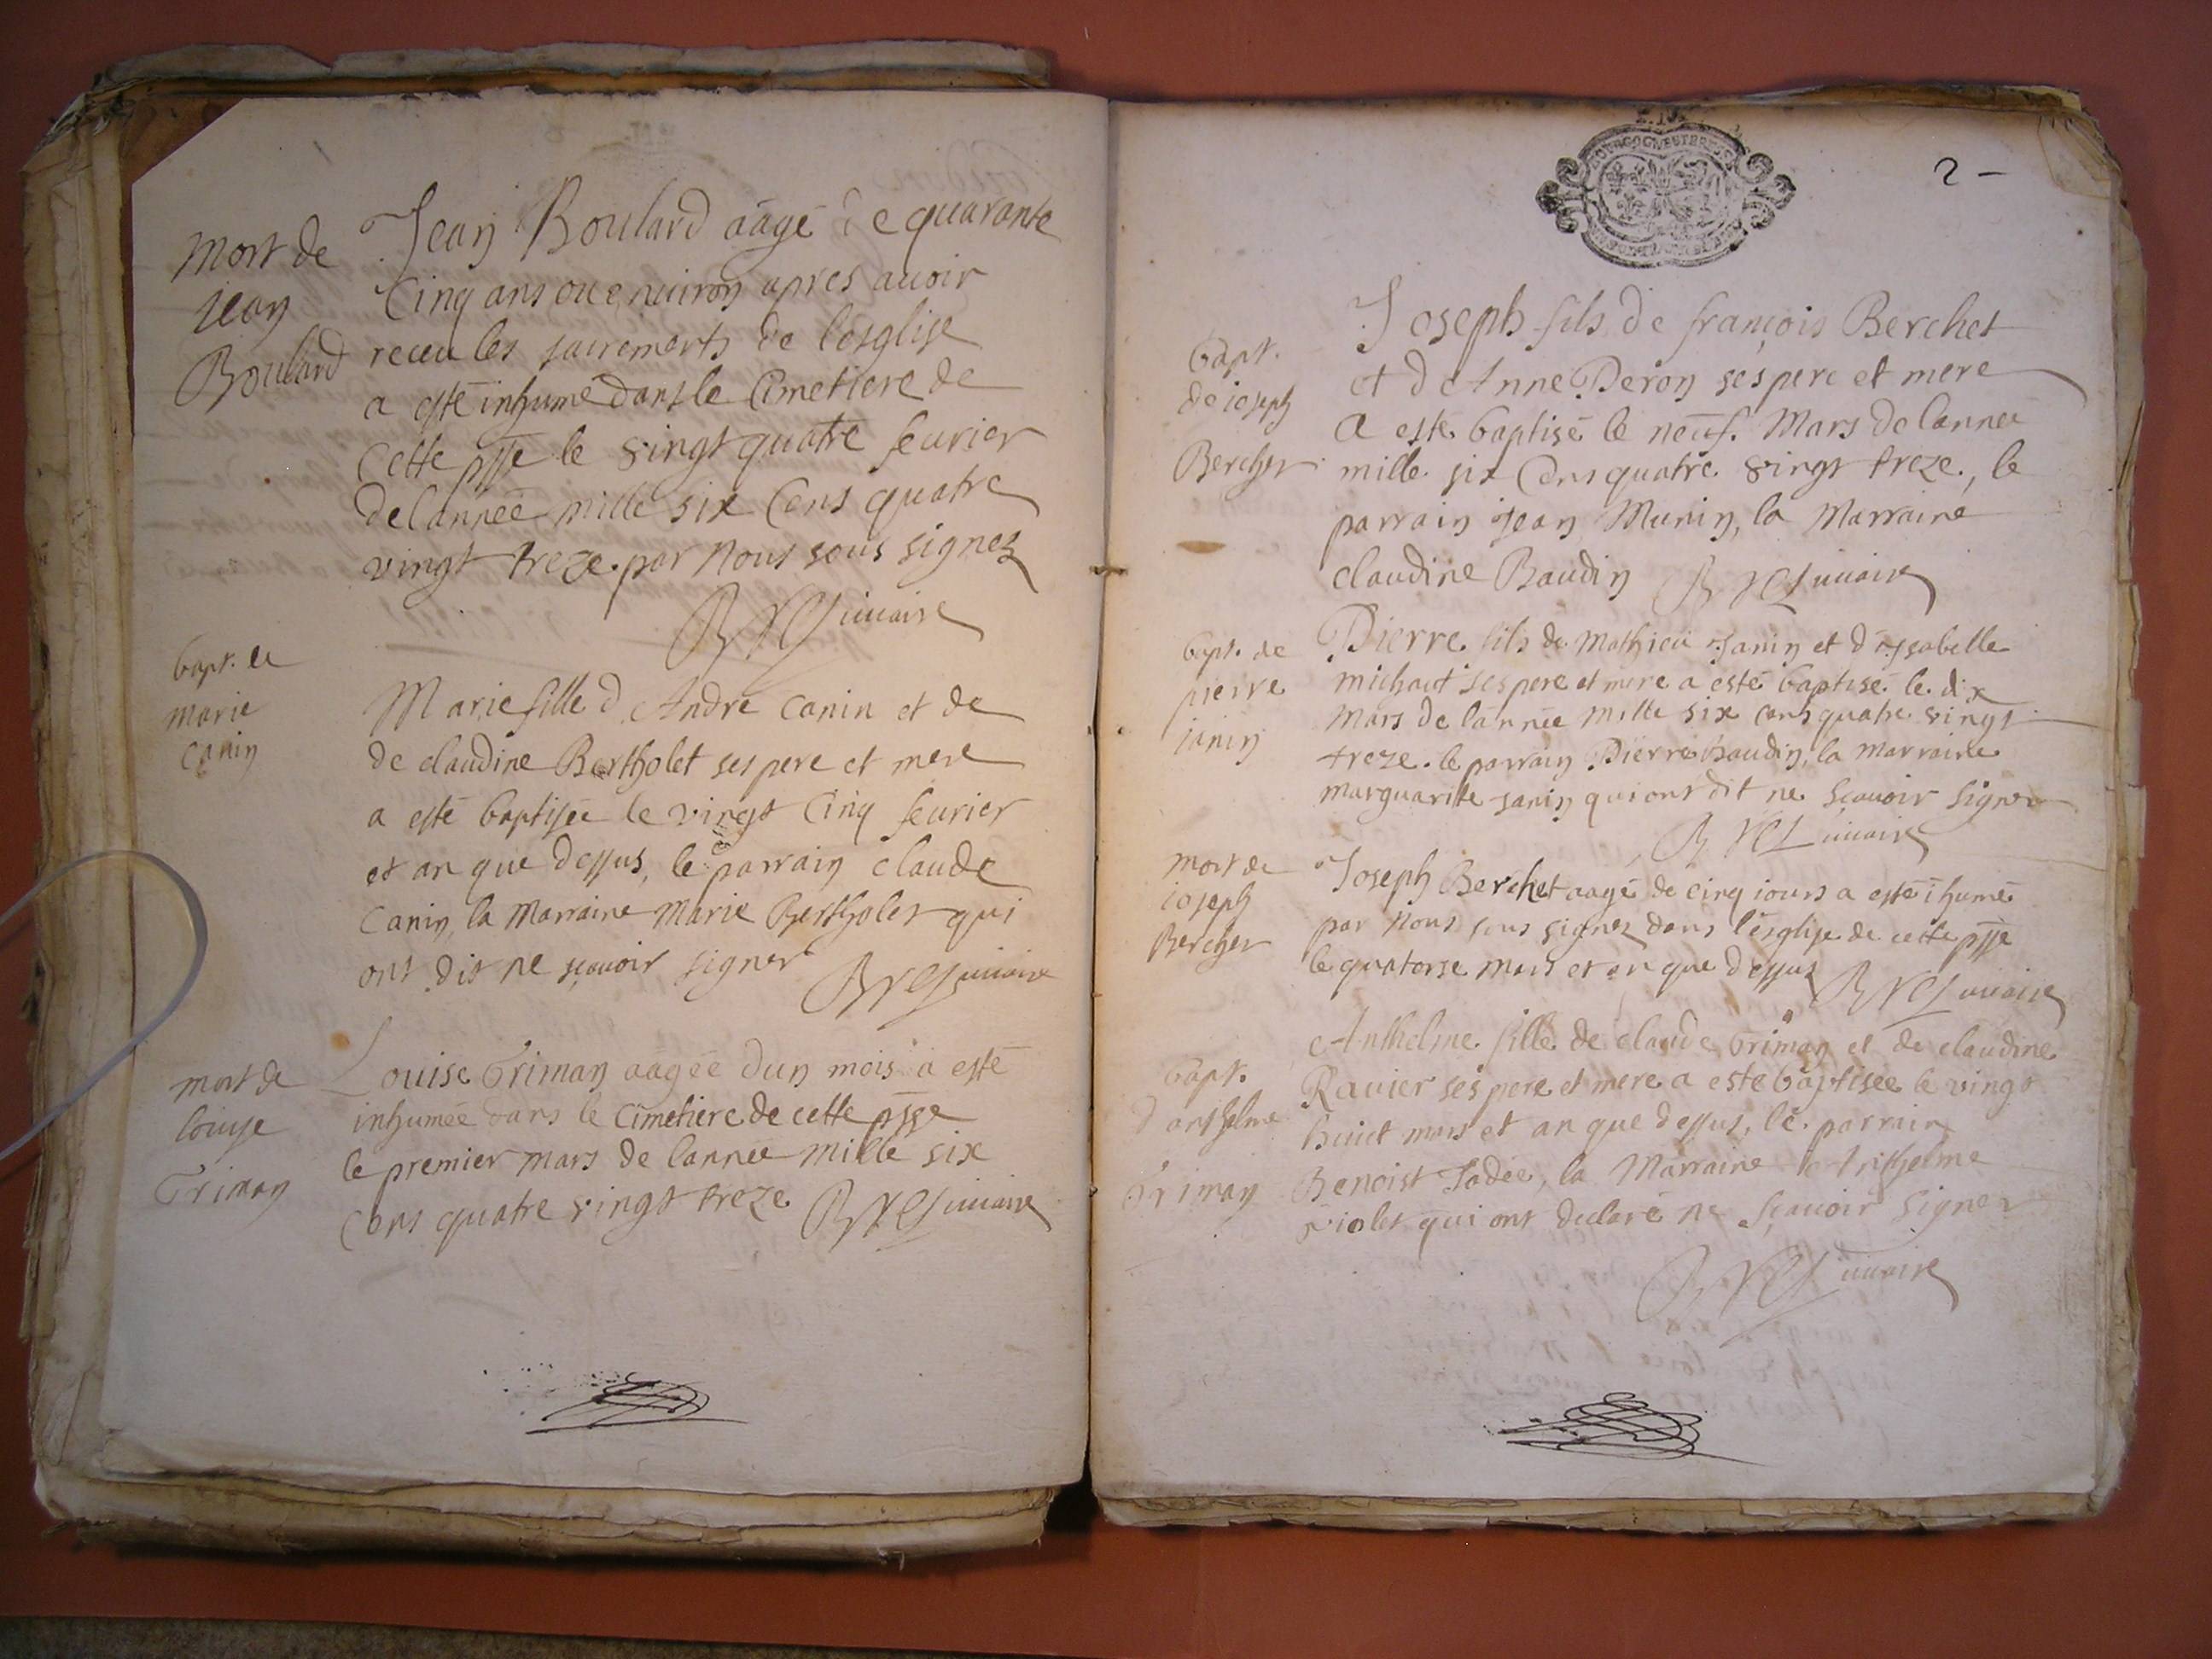 mort de
jean
Boulard
Jean Boulard aagé de quarante
Cinq ans ou enuiron apres auoir
receu les sacrements de l'esglise
a esté inhumé dans le Cimetiere de
Cette psse le vingt quatre feurier
de l'année mille six Cens quatre
vingt treze par Nous sous signez
vicaire
bapt. de
marie
canin
Marie fille d'André canin et de
de claudine Bertholet ses pere et mere
a esté baptisée le vingt Cinq feurier
et an que dessus, le parrain claude
Canin, la Marraine Marie Bertholet qui
ont dit ne sçauoir signer
vicaire
mort de
louise
Griman
Louise Griman aagée d'un mois a esté
inhumée dans le Cimetiere de cette psse
le premier mars de l'année mille six
Cens quatre vingt treze
vicaire
2
bapt.
de ioseph
Berchet
Joseph fils de françois Berchet
et d'Anne Peron ses pere et mere
a esté baptisé le neuf. Mars de l'année
mille six Cens quatre vingt treze, le
parrain Jean Munin, la Marraine
claudine Baudin
vicaire
bapt. de
pierre
ianin
Pierre fils de Mathieu Janin et d'ysabelle
michaut ses pere et mere a esté baptisé le dix
Mars de l'année mille six cens quatre vingt
treze. le parrain Pierre Baudin, la marraine
marguarite Janin qui ont dit ne sçauoir signer
vicaire
mort de
ioseph
Berchet
Joseph Berchet aagé de cinq iours a esté ihumé
par Nous sous signez dans l'esglise de cette psse
le quatorse mars et an que dessus
vicaire
bapt.
d'anthelme
Griman
Anthelme fille de claude Griman et de claudine
Rauier ses pere et mere a esté baptisée le vingt
huict mars et an que dessus, le parrain
Benoist Jadée, la Marraine Anthelme
violet qui ont declaré ne sçauoir signer
vicaire